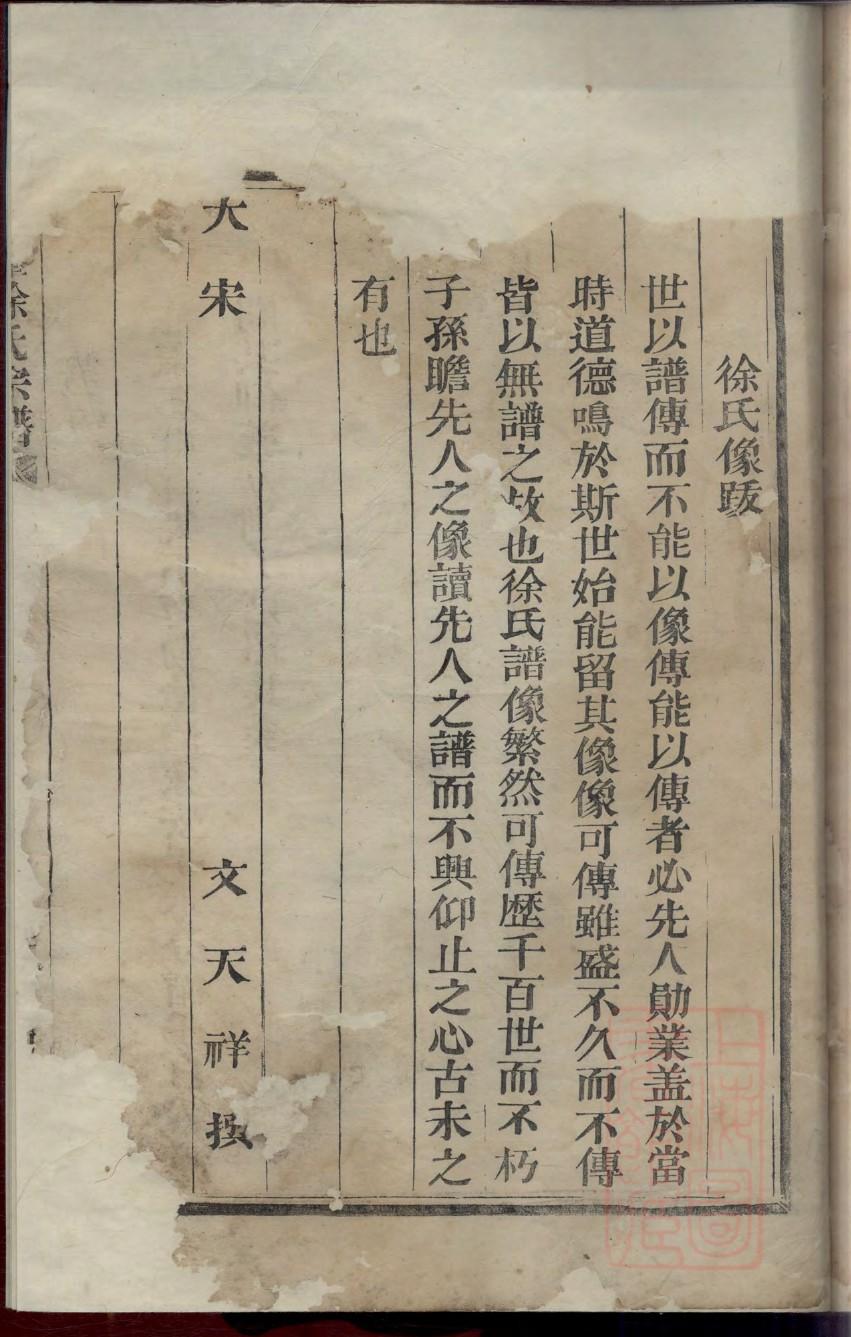 徐氏像跋
世以譜傳而不能以像傳能以傳者必先人勛業盖於當
時道德鳴於斯世始能留其像像可傳雖盛不久而不傳
皆以無譜之故也徐氏譜像繁然可傳歷千百世而不朽
子孫瞻先人之像讀先人之譜而不興仰止之心古未之
有也
大宋 文天祥
徐氏宗譜